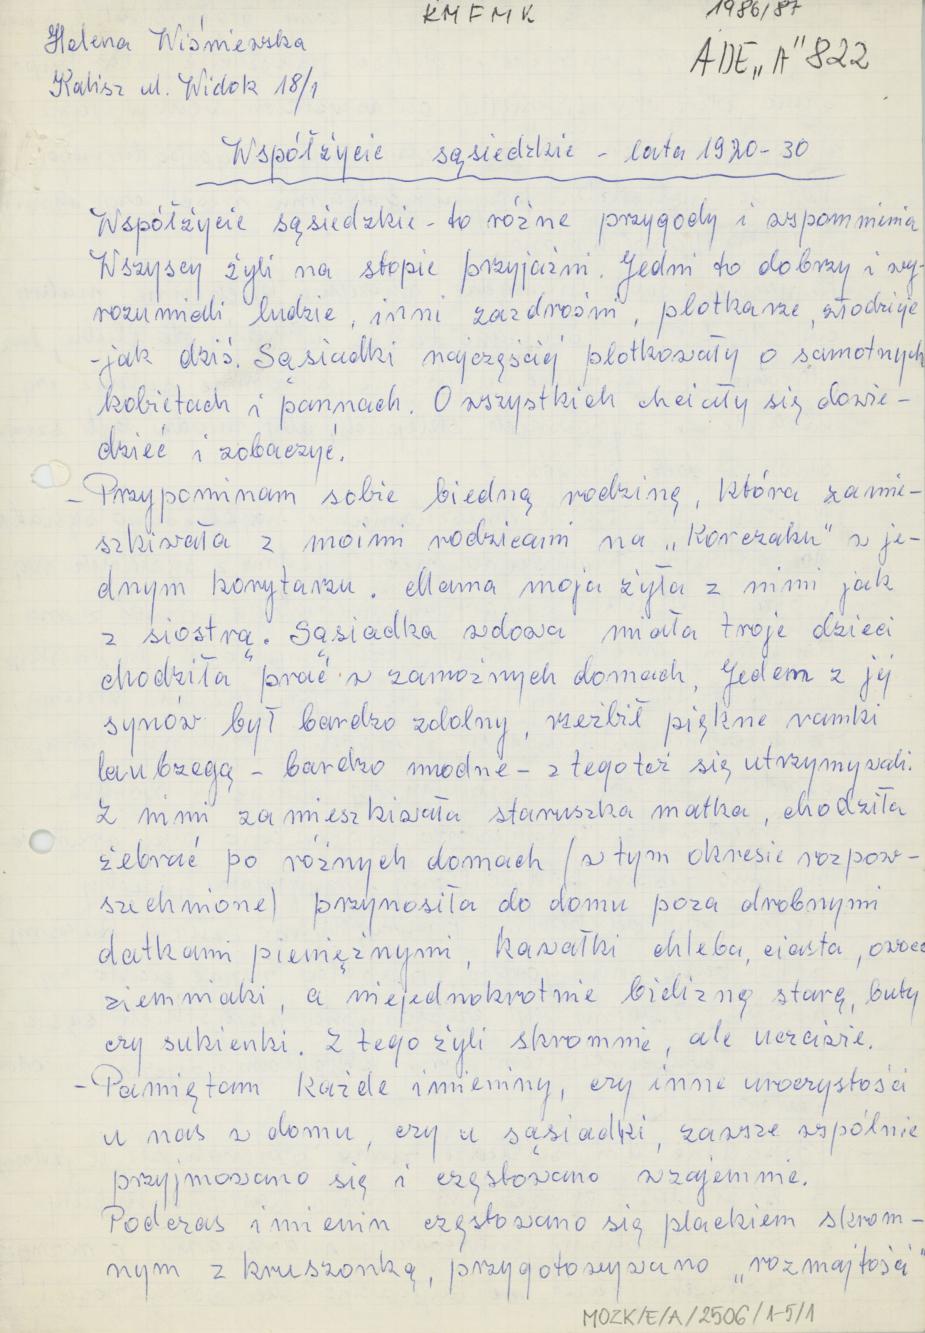 KMFMK 1986/87
Helena Wiśniewska
ADE „A" 822
Kalisz ul. Widok 18/1
Współżycie sąsiedzkie - lata 1920-30
Współżycie sąsiedzkie - to różne przygody i wspomnienia
Wszyscy żyli na stopie przyjaźni. Jedni to dobrzy i wy-
rozumiali ludzie, inni zazdrośni, plotkarze, złodzieje
- jak dziś. Sąsiadki najczęściej plotkowały o samotnych
kobietach i pannach. O wszystkich chciały się dowie-
dzieć i zobaczyć.
- Przypominam sobie biedną rodzinę, która zamie-
szkiwała z moimi rodzicami na „Korczaku" w je-
dnym korytarzu. Mama moja żyła z nimi jak
z siostrą. Sąsiadka wdowa miała troje dzieci
chodziła prać w zamożnych domach, Jeden z jej
synów był bardzo zdolny, rzeźbił piękne ramki
laubzegą - bardzo modne - z tego też się utrzymywali.
Z nimi zamieszkiwała staruszka matka, chodziła
żebrać po różnych domach (w tym okresie rozpow-
szechnione) przynosiła do domu poza drobnymi
datkami pieniężnymi, kawałki chleba, ciasta, owoce
ziemniaki, a niejednokrotnie bieliznę starą, buty
czy sukienki. Z tego żyli skromnie, ale uczciwie.
- Pamiętam każde imieniny, czy inne uroczystości
u nas w domu, czy u sąsiadki, zawsze wspólnie
przyjmowano się i częstowano wzajemnie.
Podczas imienin częstowano się plackiem skrom-
nym z kruszonką, przygotowywano „rozmajtości"
MOZK/E/A/2506/1-5/1